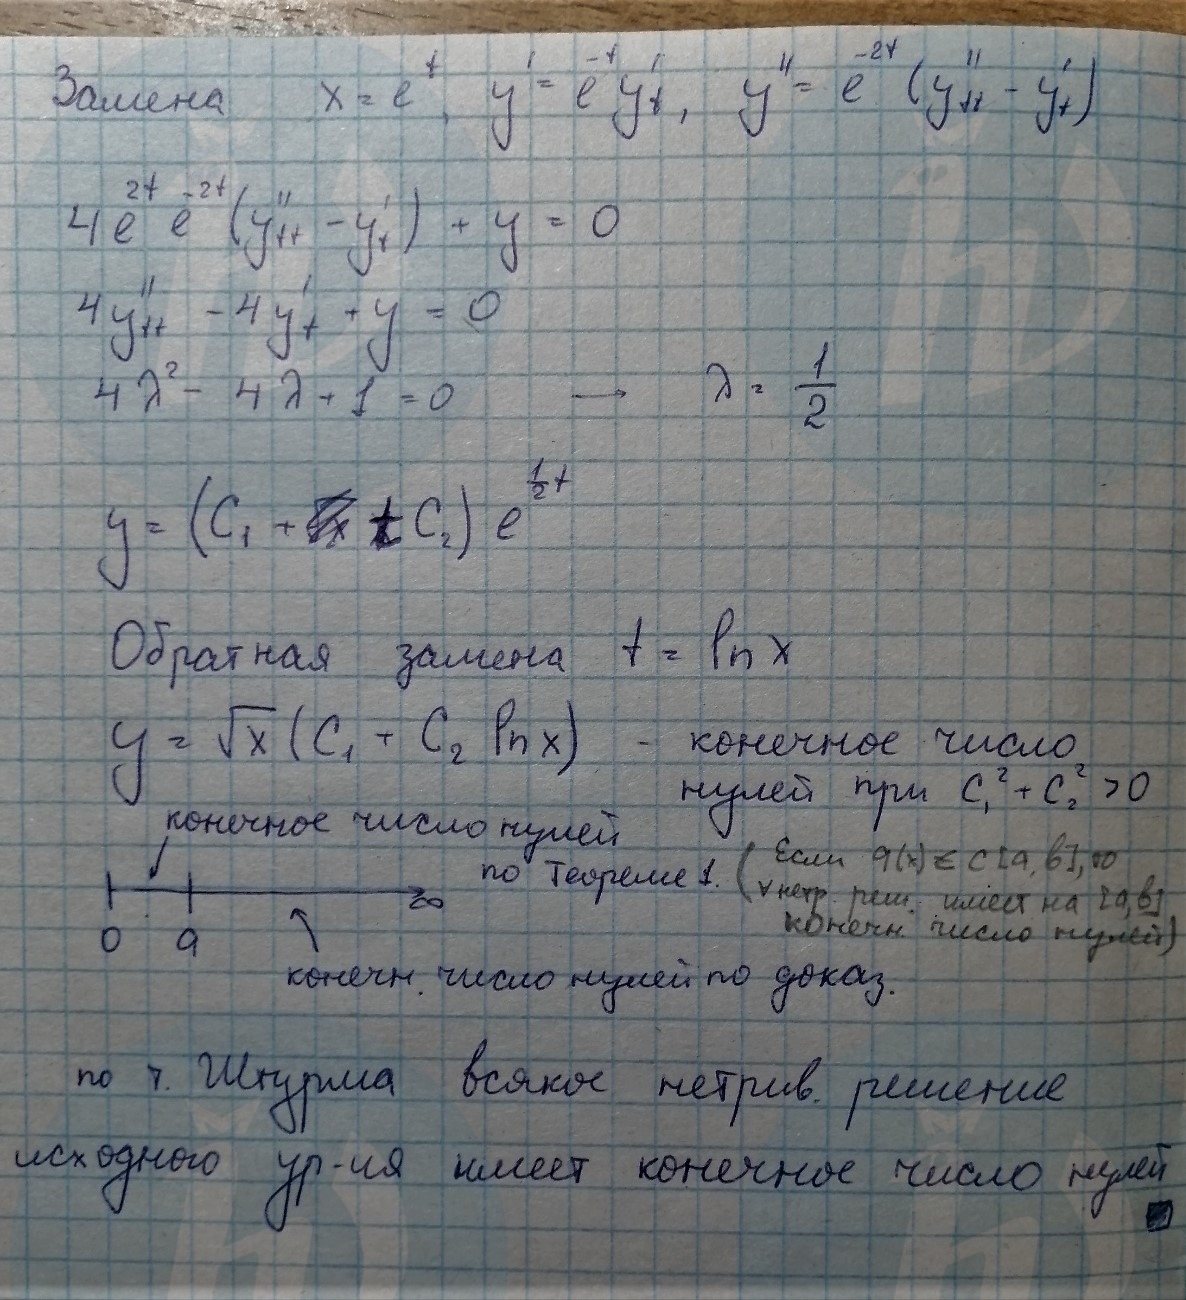 Замена x = e^t, y' = e^{-t} y'_t, y'' = e^{-2t} (y''_{tt} - y'_t)
4 e^{2t} e^{-2t} (y''_{tt} - y'_t) + y = 0
4y''_{tt} - 4y'_t + y = 0
4λ² - 4λ + 1 = 0 → λ = 1/2
y = (C₁ + t C₂) e^{1/2 t}
Обратная замена t = ln x
y = √x (C₁ + C₂ ln x) - конечное число
нулей при C₁² + C₂² > 0
конечное число нулей
по Теореме 1. (Если q(x) ∈ C[a,b], то
∀ нетр. реш. имеет на [a,b]
конечн. число нулей)
0 a ∞
конечн. число нулей по доказ.
по т. Штурма всякое нетрив. решение
исходного ур-ия имеет конечное число нулей